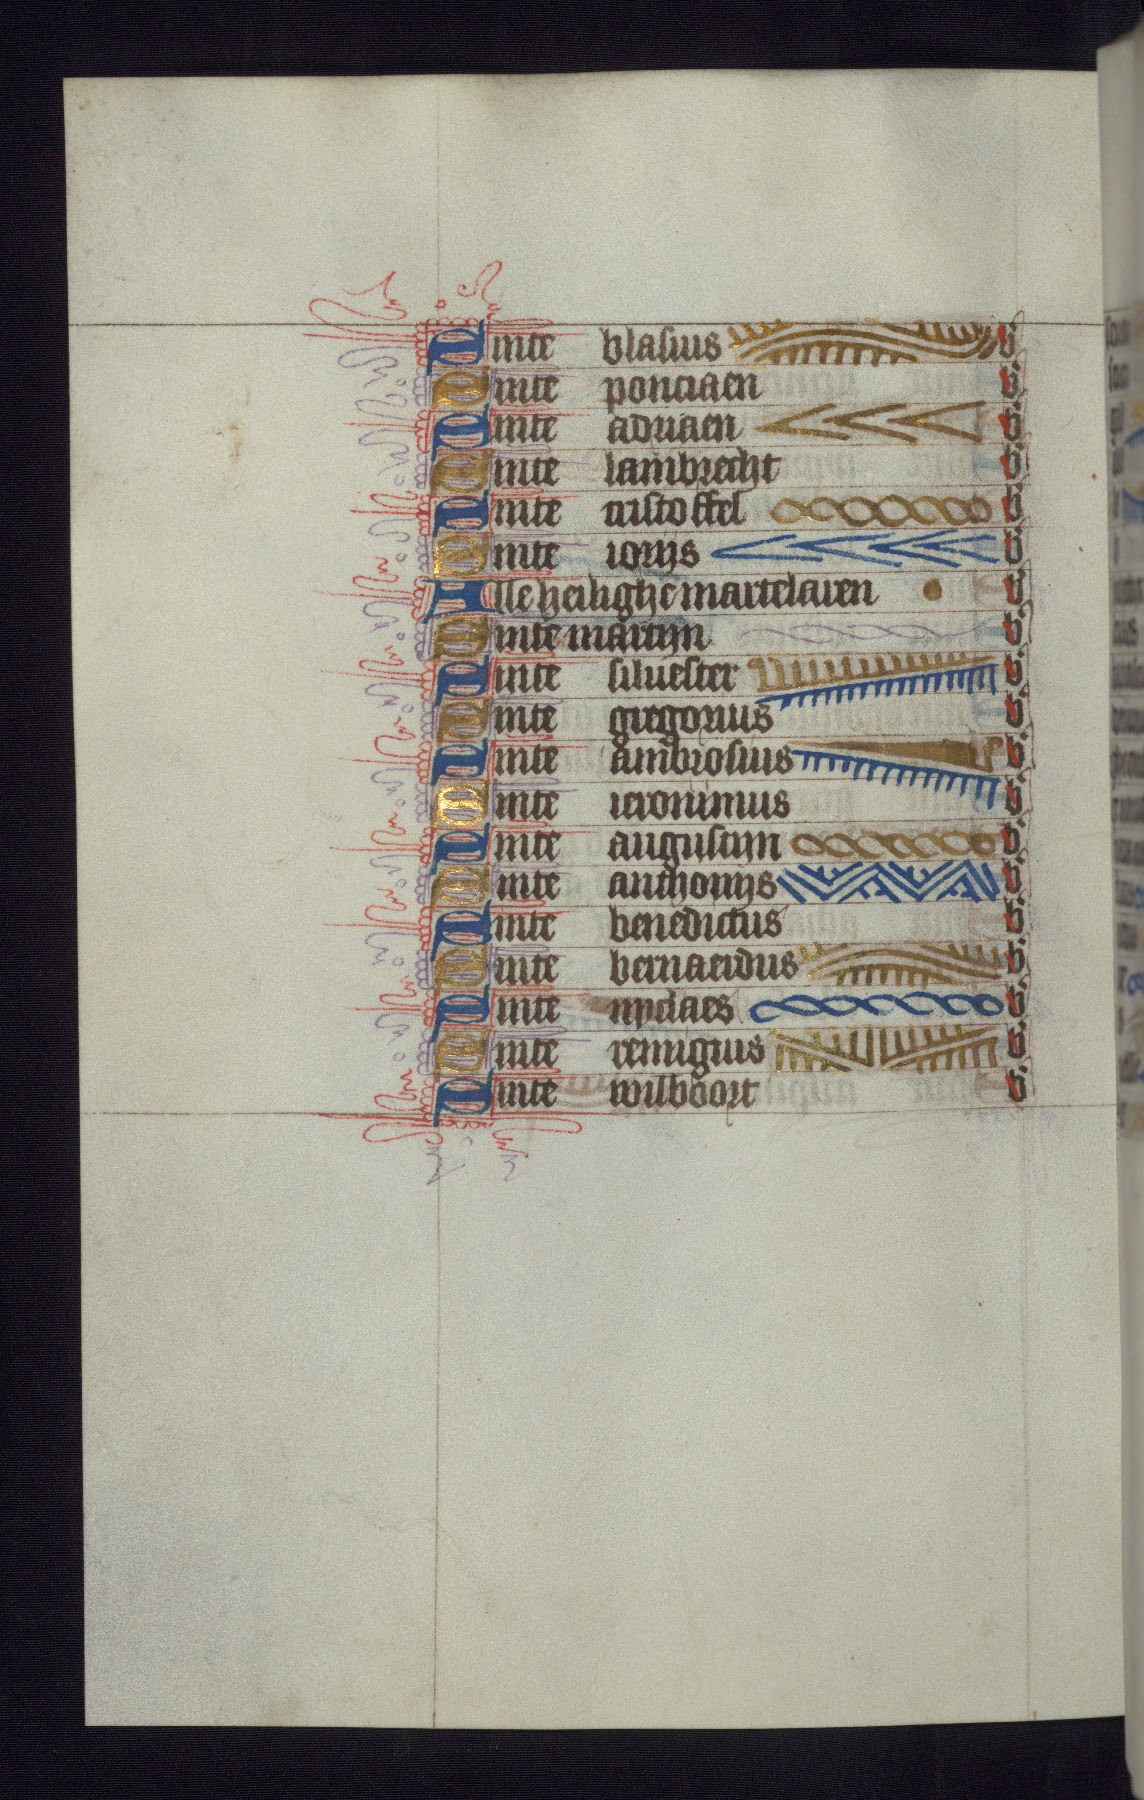 Sinte blasius b
Sinte ponciaen b
Sinte adriaen b
Sinte lambrecht b
Sinte cristoffel b
Sinte iorijs b
Alle heilighe martelaren b
Sinte martijn b
Sinte siluester b
Sinte gregorius b
Sinte ambrosius b
Sinte ieronimus b
Sinte augustijn b
Sinte anthonijs b
Sinte benedictus b
Sinte bernaerdus b
Sinte nyclaes b
Sinte remigius b
Sinte wilboort b